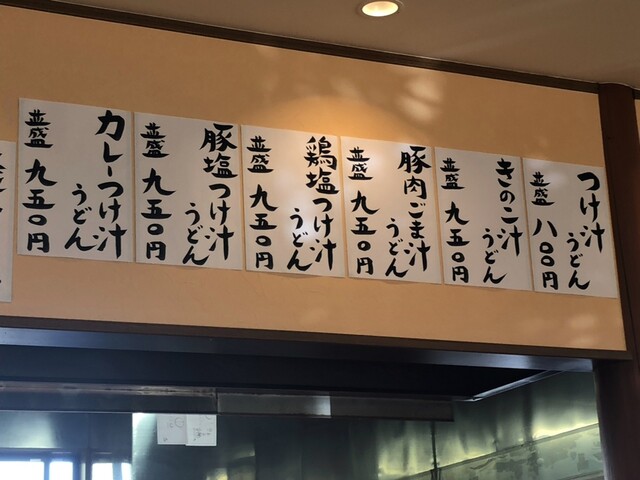 つけ汁
うどん
並盛 八〇〇円
きのこ汁
うどん
並盛 九五〇円
豚肉ごま汁
うどん
並盛 九五〇円
鶏塩つけ汁
うどん
並盛 九五〇円
豚塩つけ汁
うどん
並盛 九五〇円
カレーつけ汁
うどん
並盛 九五〇円